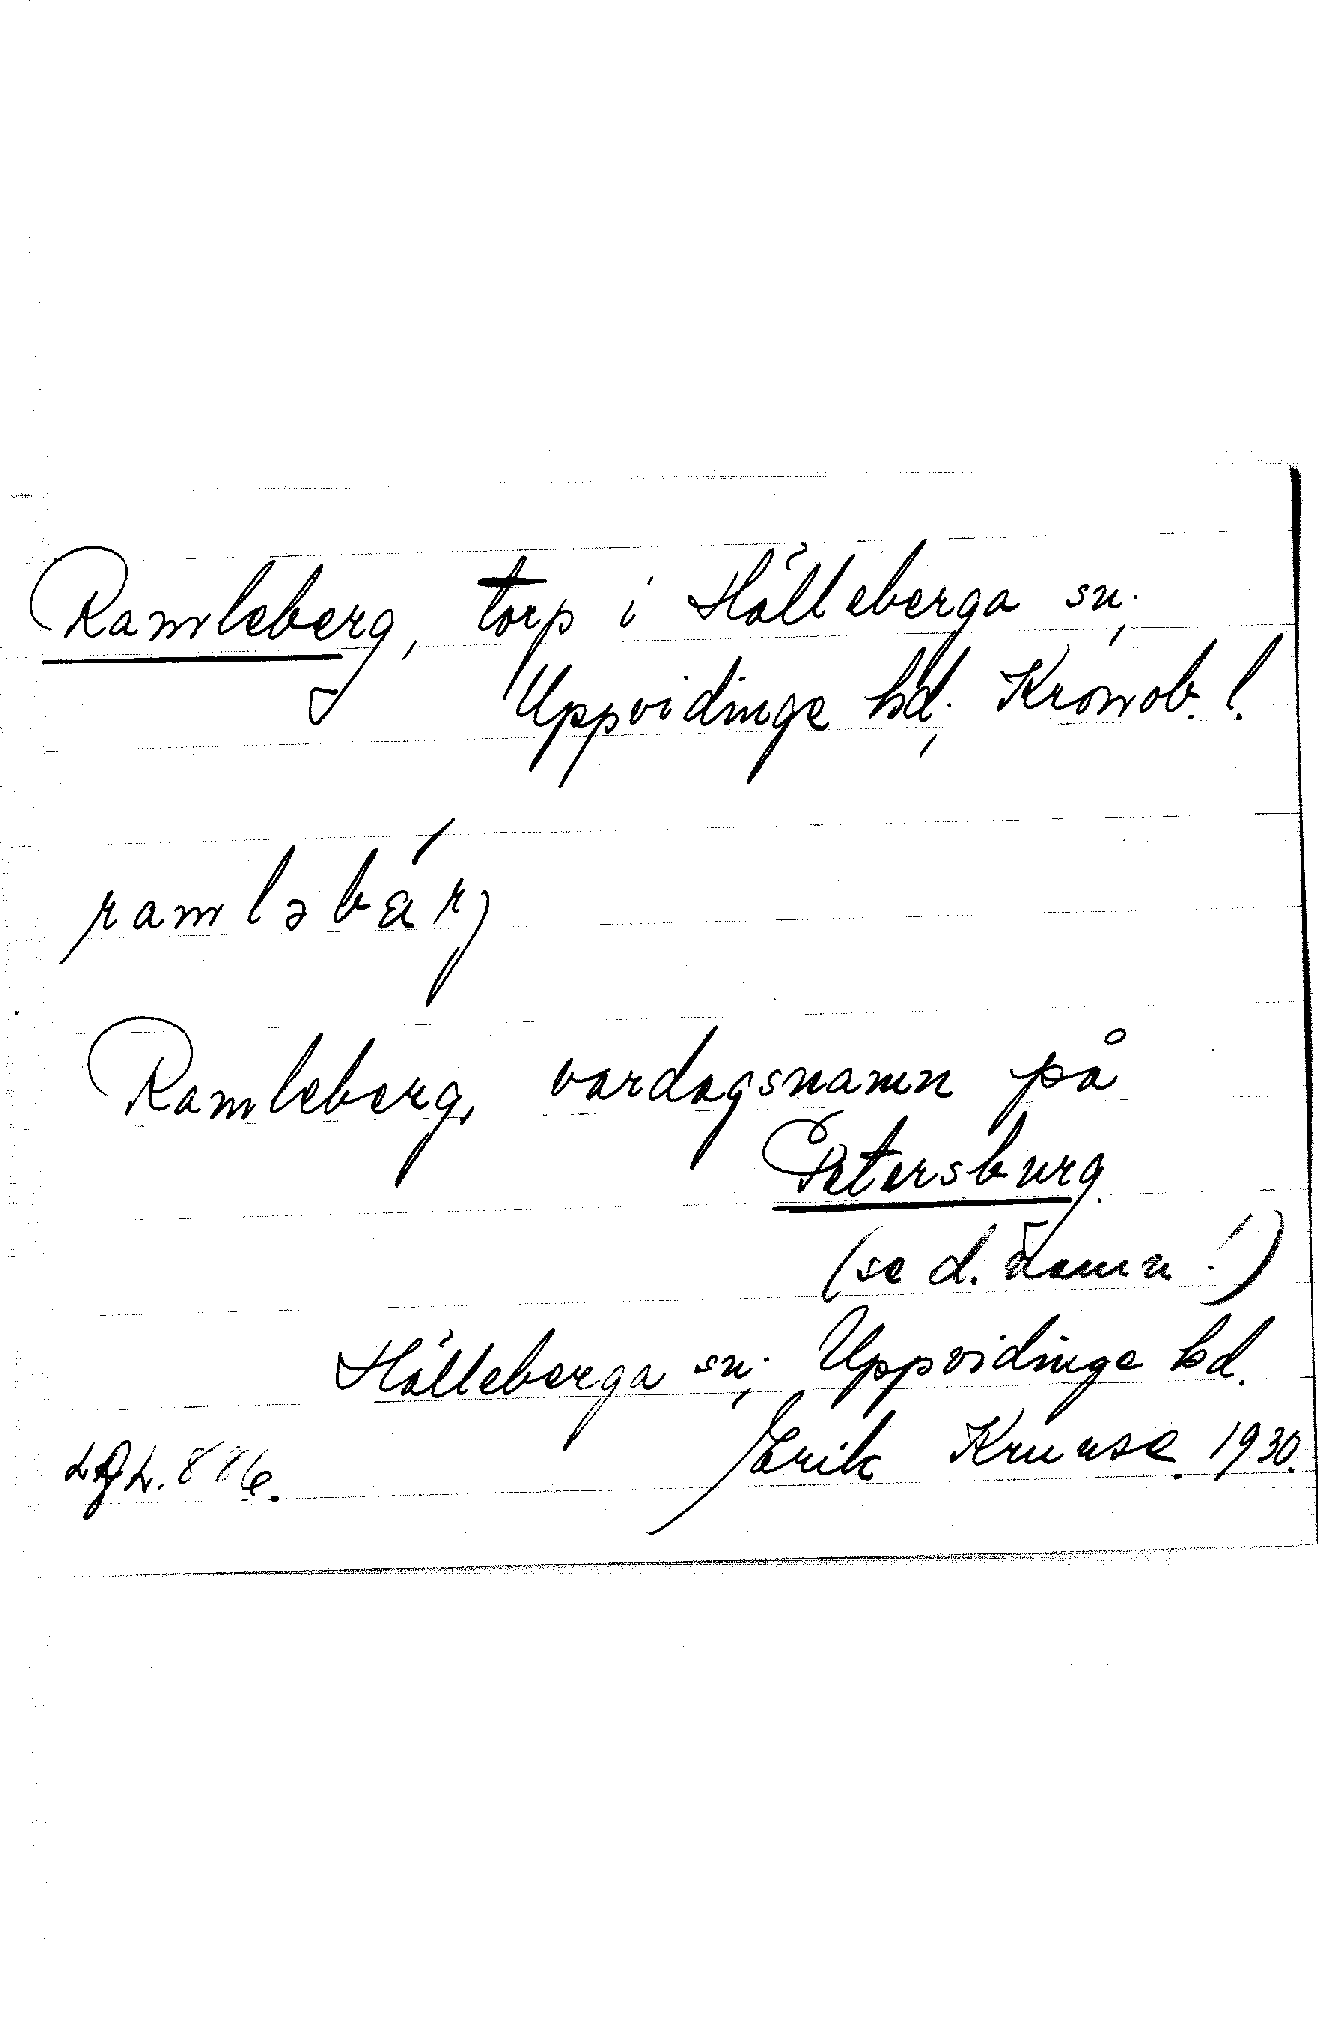 Ramleberg, torp i Hälleberga sn.,
Uppvidinge hd., Kronob. l.
ramləbárj
Ramleberg, vardagsnamn på
Petersburg
(se d. namn!)
Hälleberga sn., Uppvidinge hd.
Erik Kruuse. 1930.
886.